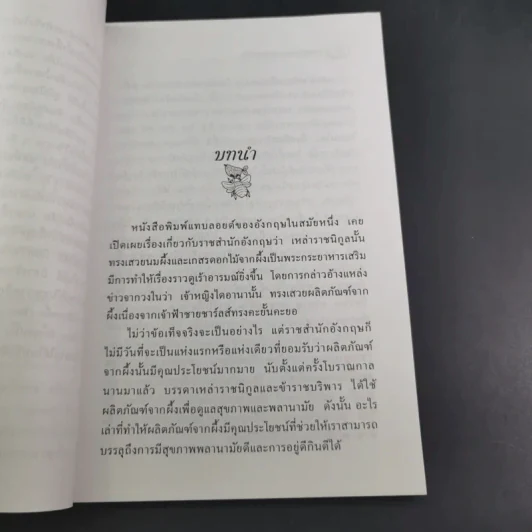 บทนำ
หนังสือพิมพ์แทบลอยด์ของอังกฤษในสมัยหนึ่ง เคย
เปิดเผยเรื่องเกี่ยวกับราชสำนักอังกฤษว่า เหล่าราชนิกูลนั้น
ทรงเสวยนมผึ้งและเกสรดอกไม้จากผึ้งเป็นพระกระยาหารเสริม
มีการทำให้เรื่องราวดูเร้าอารมณ์ยิ่งขึ้น โดยการกล่าวอ้างแหล่ง
ข่าวจากวงในว่า เจ้าหญิงไดอานานั้น ทรงเสวยผลิตภัณฑ์จาก
ผึ้งเนื่องจากเจ้าฟ้าชายชาร์ลส์ทรงคะยั้นคะยอ
ไม่ว่าข้อเท็จจริงจะเป็นอย่างไร แต่ราชสำนักอังกฤษก็
ไม่มีวันที่จะเป็นแห่งแรกหรือแห่งเดียวที่ยอมรับว่าผลิตภัณฑ์
จากผึ้งนั้นมีคุณประโยชน์มากมาย นับตั้งแต่ครั้งโบราณกาล
นานมาแล้ว บรรดาเหล่าราชนิกูลและข้าราชบริพาร ได้ใช้
ผลิตภัณฑ์จากผึ้งเพื่อดูแลสุขภาพและพลานามัย ดังนั้น อะไร
เล่าที่ทำให้ผลิตภัณฑ์จากผึ้งมีคุณประโยชน์ที่ช่วยให้เราสามารถ
บรรลุถึงการมีสุขภาพพลานามัยดีและการอยู่ดีกินดีได้